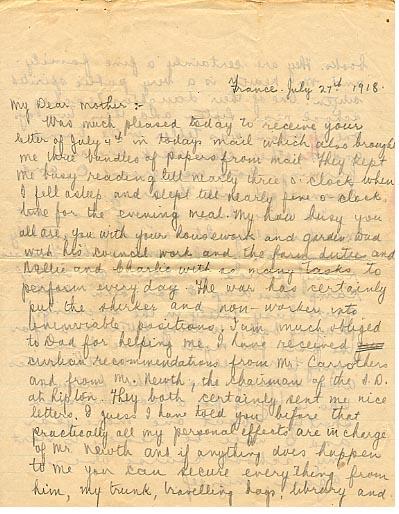 France. July 27th 1918.
My Dear Mother :-
Was much pleased today to receive your
letter of July 4th in todays mail which also brought
me three bundles of papers from mail. They kept
me busy reading till nearly three o'clock when
I fell asleep and slept till nearly five o clock
time for the evening meal. My how busy you
all are, you with your housework and garden, Dad
with his council work and the farm duties and
Nellie and Charlie with so many tasks to
perform every day. The war has certainly
put the shirker and non-worker into
unenviable positions. I am much obliged
to Dad for helping me. I have received
recommendations from Mr. Carrothers
and from Mr. Newth, the chairman of the S.D.
at Kipton. They both certainly sent me nice
letters. I guess I have told you before that
practically all my personal effects are in charge
of Mr. Newth and if anything does happen
to me you can secure everything from
him, my trunk, travelling bags, library and